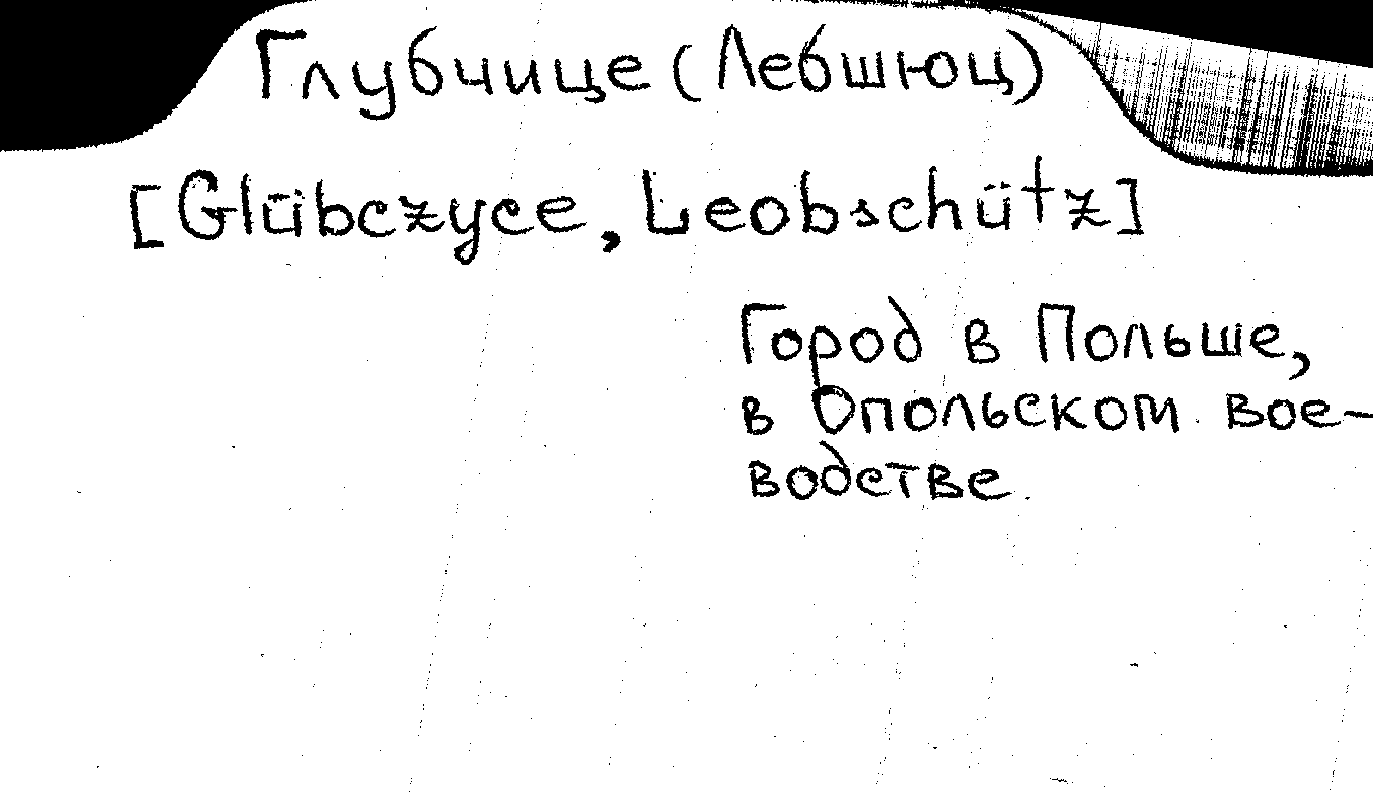 Глубчице (Лебшюц)
[Glübczyce, Leobschütz]
Город в Польше,
в Опольском вое-
водстве.